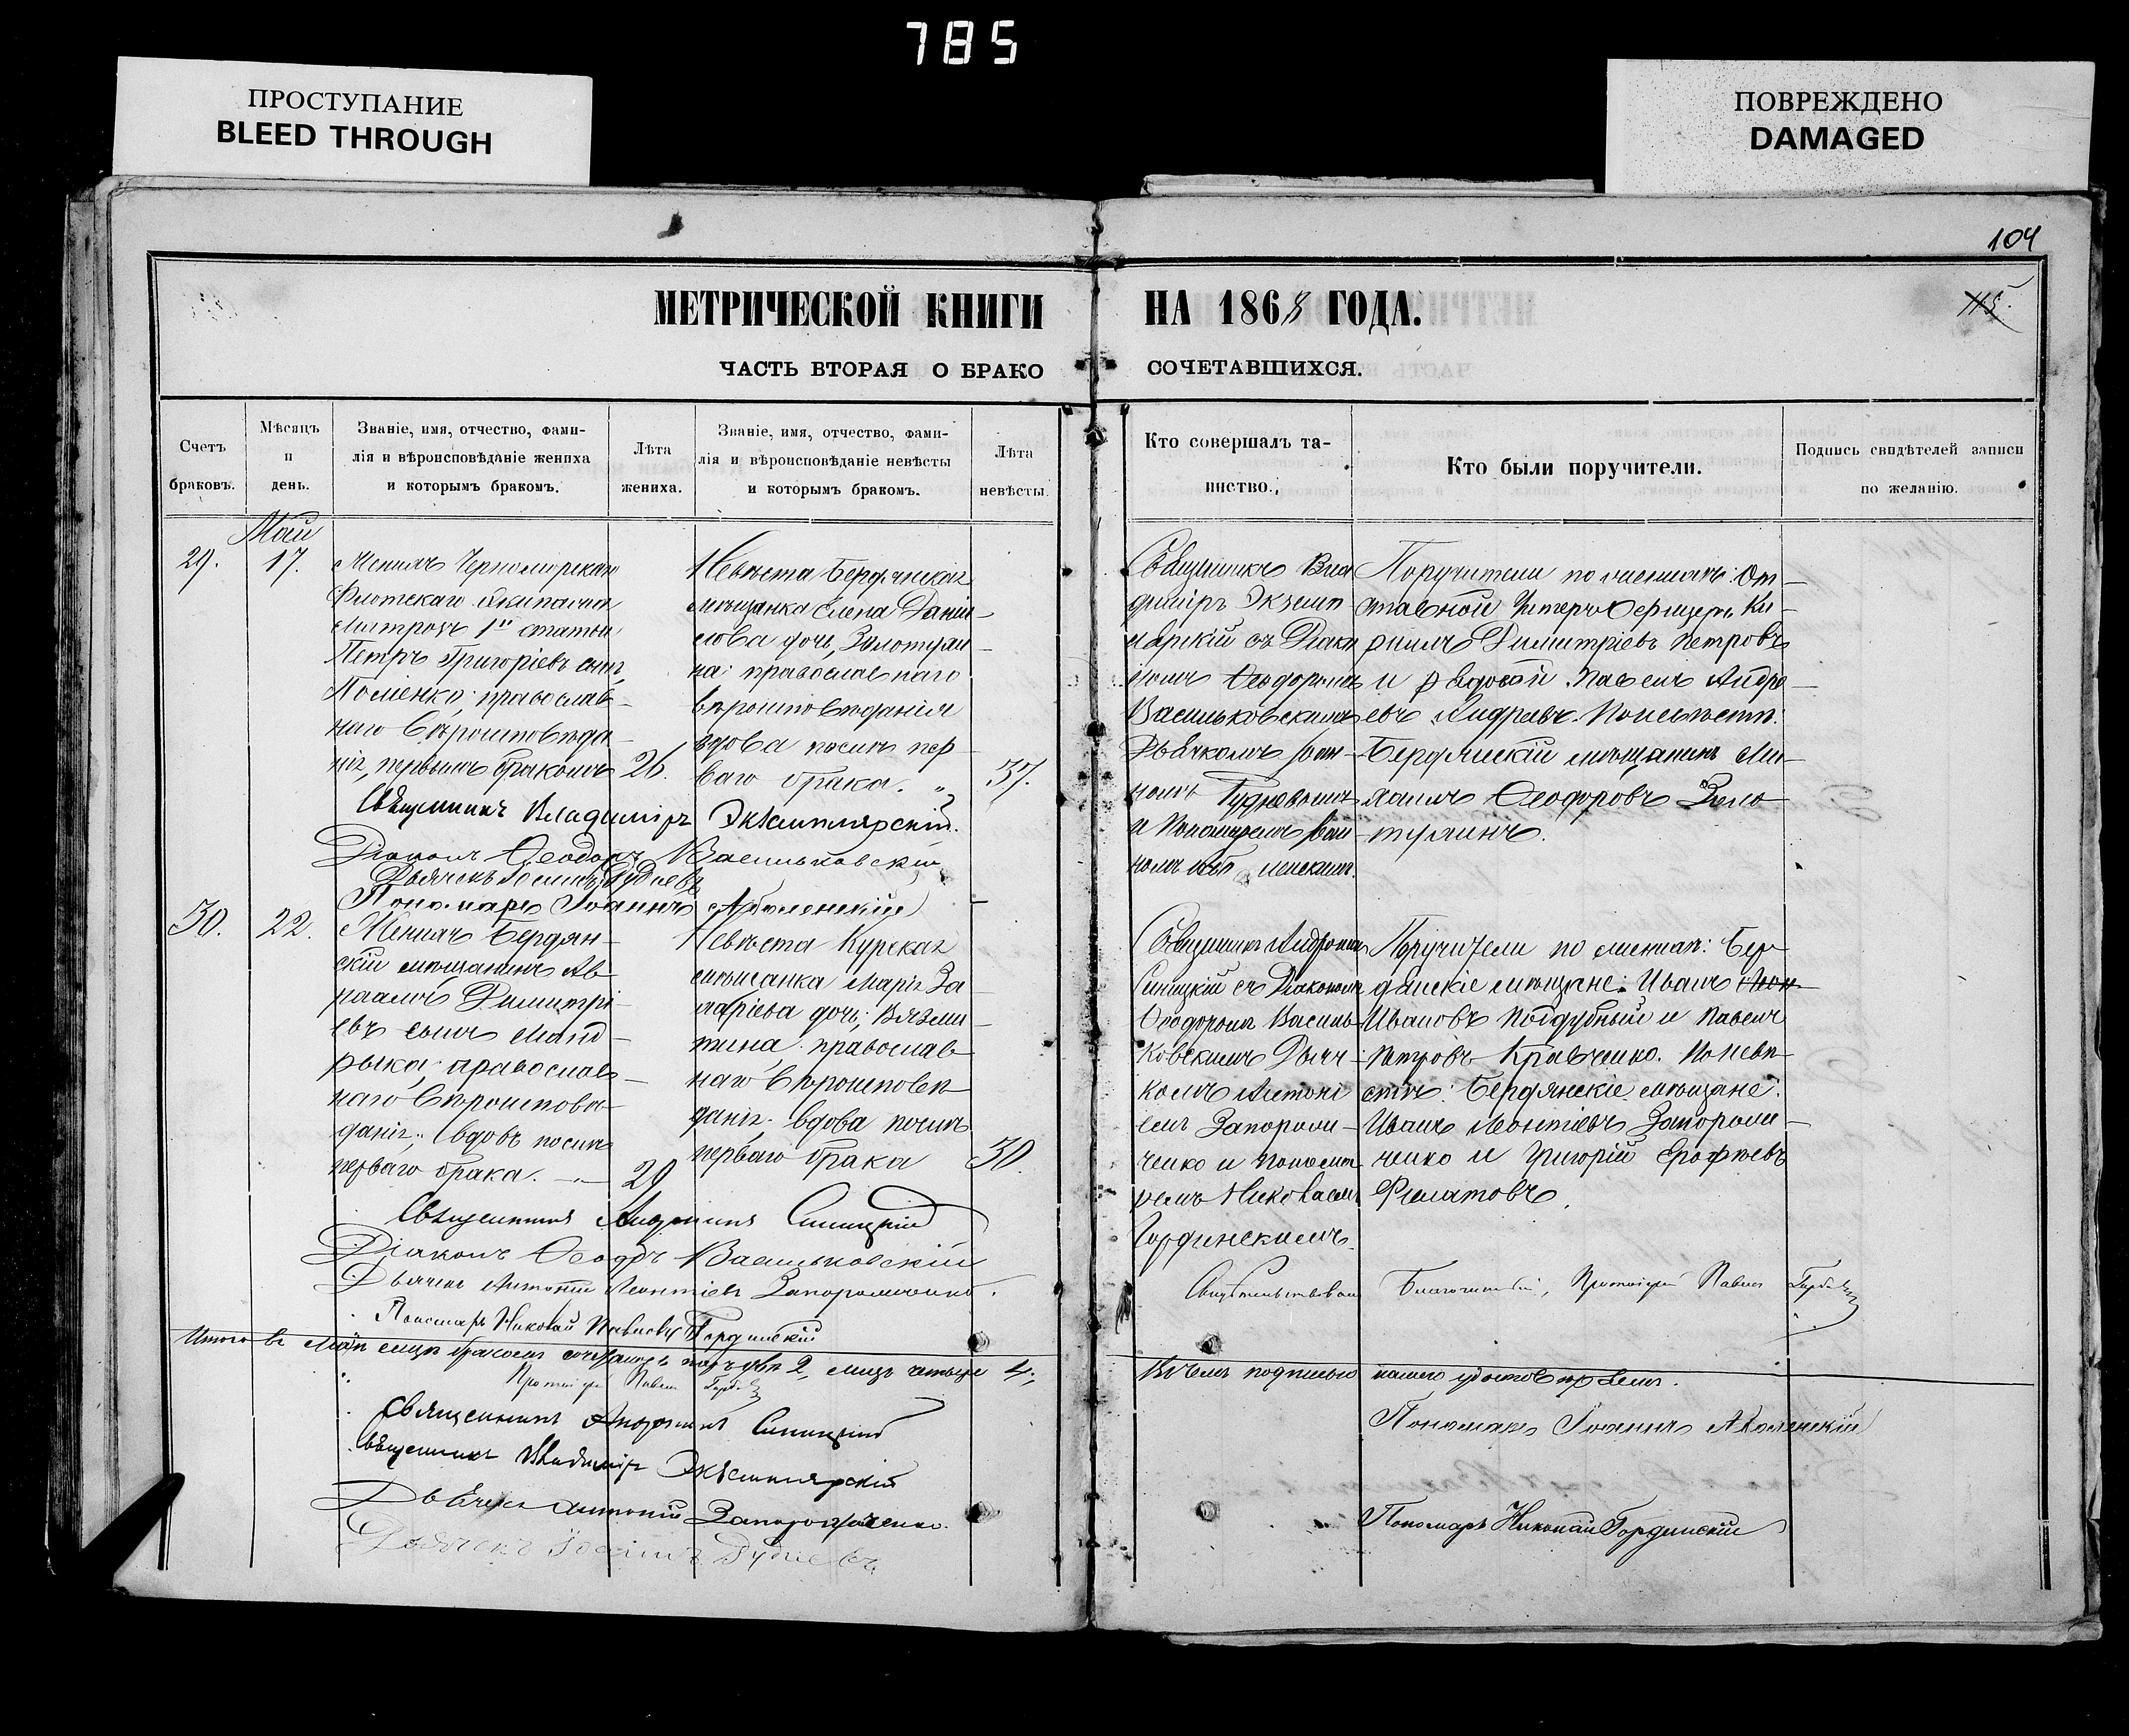 785
ПРОСТУПАНИЕ
BLEED THROUGH
ПОВРЕЖДЕНО
DAMAGED
104
115.
МЕТРИЧЕСКОЙ КНИГИ НА 1868 ГОДА.
ЧАСТЬ ВТОРАЯ О БРАКО СОЧЕТАВШИХСЯ.
Счетъ
браковъ.
Мѣсяцъ
и
день.
Званіе, имя, отчество, фами-
лія и вѣроисповѣданіе жениха
и которымъ бракомъ.
Лѣта
жениха.
Званіе, имя, отчество, фами-
лія и вѣроисповѣданіе невѣсты
и которымъ бракомъ.
Лѣта
невѣсты.
Кто совершалъ та-
инство.
Кто были поручители.
Подпись свидѣтелей записи
по желанію.
Май
29.
17.
Женихъ Черноморскаго
Флотскаго Экипажа
Матрозъ 1й статьи
Петръ Григоріевъ сынъ
православ-
наго вѣроисповѣда-
нія, первымъ бракомъ
26.
Невѣста Бердянская
мѣщанка Елена Даніи-
лова дочь, Золотухи-
на: православнаго
вѣроисповѣданія
вдова послѣ пер-
ваго брака.
37.
Священникъ Вла
диміръ Экземп
лярскій съ Діако
номъ Ѳеодоромъ
Васильковскимъ
Дьячкомъ Іоан-
номъ
и Пономаремъ Іоан-
номъ
Поручители по женихѣ: От-
ставной Унтеръ Офицеръ Ки-
риллъ Димитріевъ Петровъ
и рядовой Павелъ Андре-
евъ По невѣстѣ:
Бердянскій мѣщанинъ Ми-
хаилъ Ѳеодоровъ Золо-
тухинъ.
Священникъ Владиміръ Экземплярскій.
Діаконъ Ѳеодоръ Васильковскій
Дьячекъ
Пономарь Іоаннъ
30.
22.
Женихъ Бердян-
скій мѣщанинъ Ав-
раамъ Димитрі-
евъ сынъ Манд-
рыка; православ-
наго вѣроисповѣ-
данія; вдовъ послѣ
перваго брака.
29
Невѣста Курская
мѣщанка Марія За-
харіева дочь; Вязми-
тина: православ-
наго вѣроисповѣ-
данія. вдова послѣ
перваго брака
30.
Священникъ Андроникъ
Синицкій съ Діакономъ
Ѳеодоромъ Василь-
ковскимъ Дьяч-
комъ Антоні
емъ Запорож-
ченко и Понома-
ремъ Николаемъ
Гординскимъ.
Поручители по женихѣ: Бер-
дянскіе мѣщане: Иванъ
Ивановъ Поддубный и Павелъ
Петровъ Кравченко. По невѣ-
стѣ: Бердянскіе мѣщане:
Иванъ Леонтіевъ Запорож-
ченко и Григорій Ерофѣевъ
Филатовъ.
Священникъ Андроникъ Синицкій
Діаконъ Ѳеодръ Васильковскій
Дьячекъ Антоній Леонтіевъ Запорожченко.
Пономарь Николай Павловъ Гординскій
Свидѣтельствовалъ Благочинный, Протоіерей Павелъ
Итого въ Маѣ мцѣ бракомъ сочеталось паръ двѣ 2, лицъ четыре 4.
Въ чемъ подписью нашею удостовѣряемъ.
Протоіерей Павелъ
Священникъ Андроникъ Синицкій
Священникъ Владиміръ Экземплярскій
Дьячекъ Антоній Запорожченко.
Дьячекъ
Пономарь Іоаннъ
Пономарь Николай Гординскій